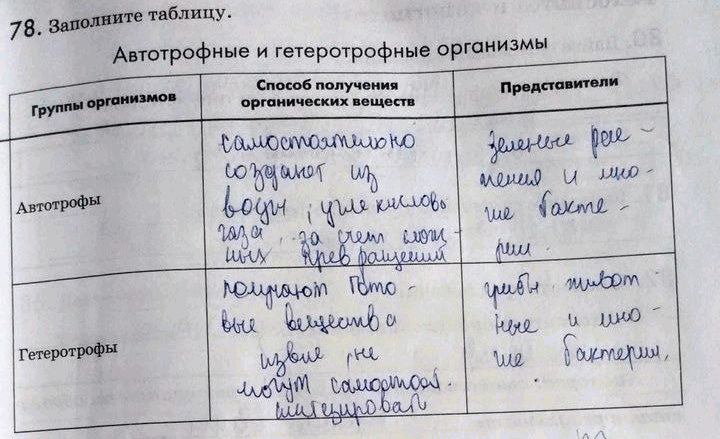 78. Заполните таблицу.
Автотрофные и гетеротрофные организмы
Группы организмов
Способ получения
органических веществ
Представители
Автотрофы
самостоятельно
создают из
воды, углекислово
газа, за счет слож-
ных превращений
зеленые рас-
тения и мно-
гие бакте-
рии.
Гетеротрофы
получают гото-
вые вещества
извне, не
могут самостоят.
синтезировать
грибы живот
ные и мно-
гие бактерии.